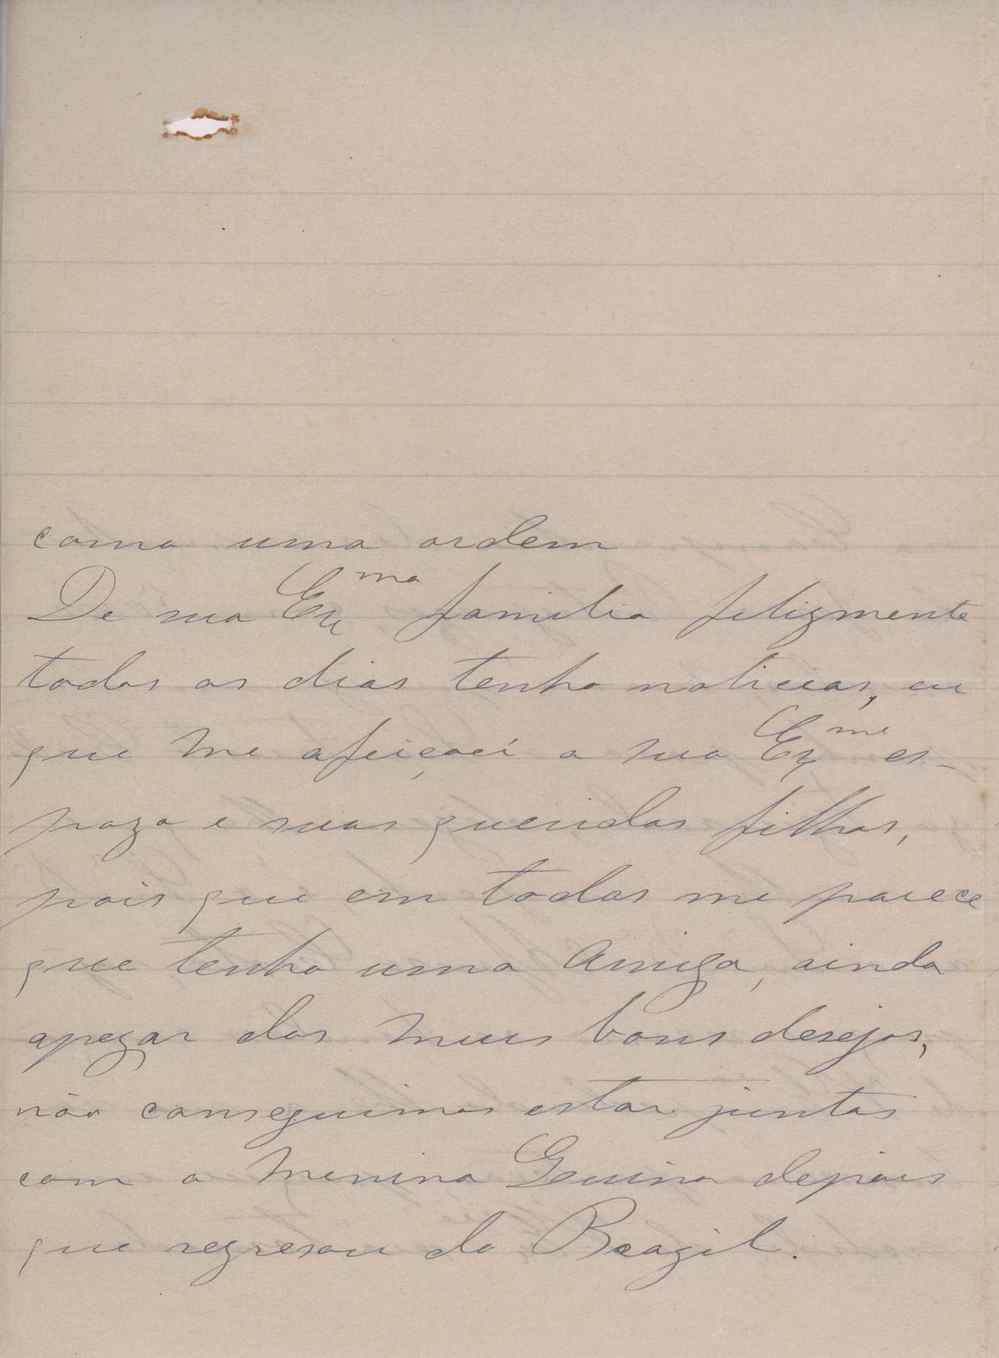 como uma ordem
De sua Exma familia felizmente
todos os dias tenho noticias, eu
que me afeiçoei a sua Exme es-
poza e suas queridas filhas,
pois que em todas me parece
que tenho uma Amiga, ainda
apezar dos meus bons desejos,
não conseguimos estar juntos
com a menina depois
que regresou do Brazil.